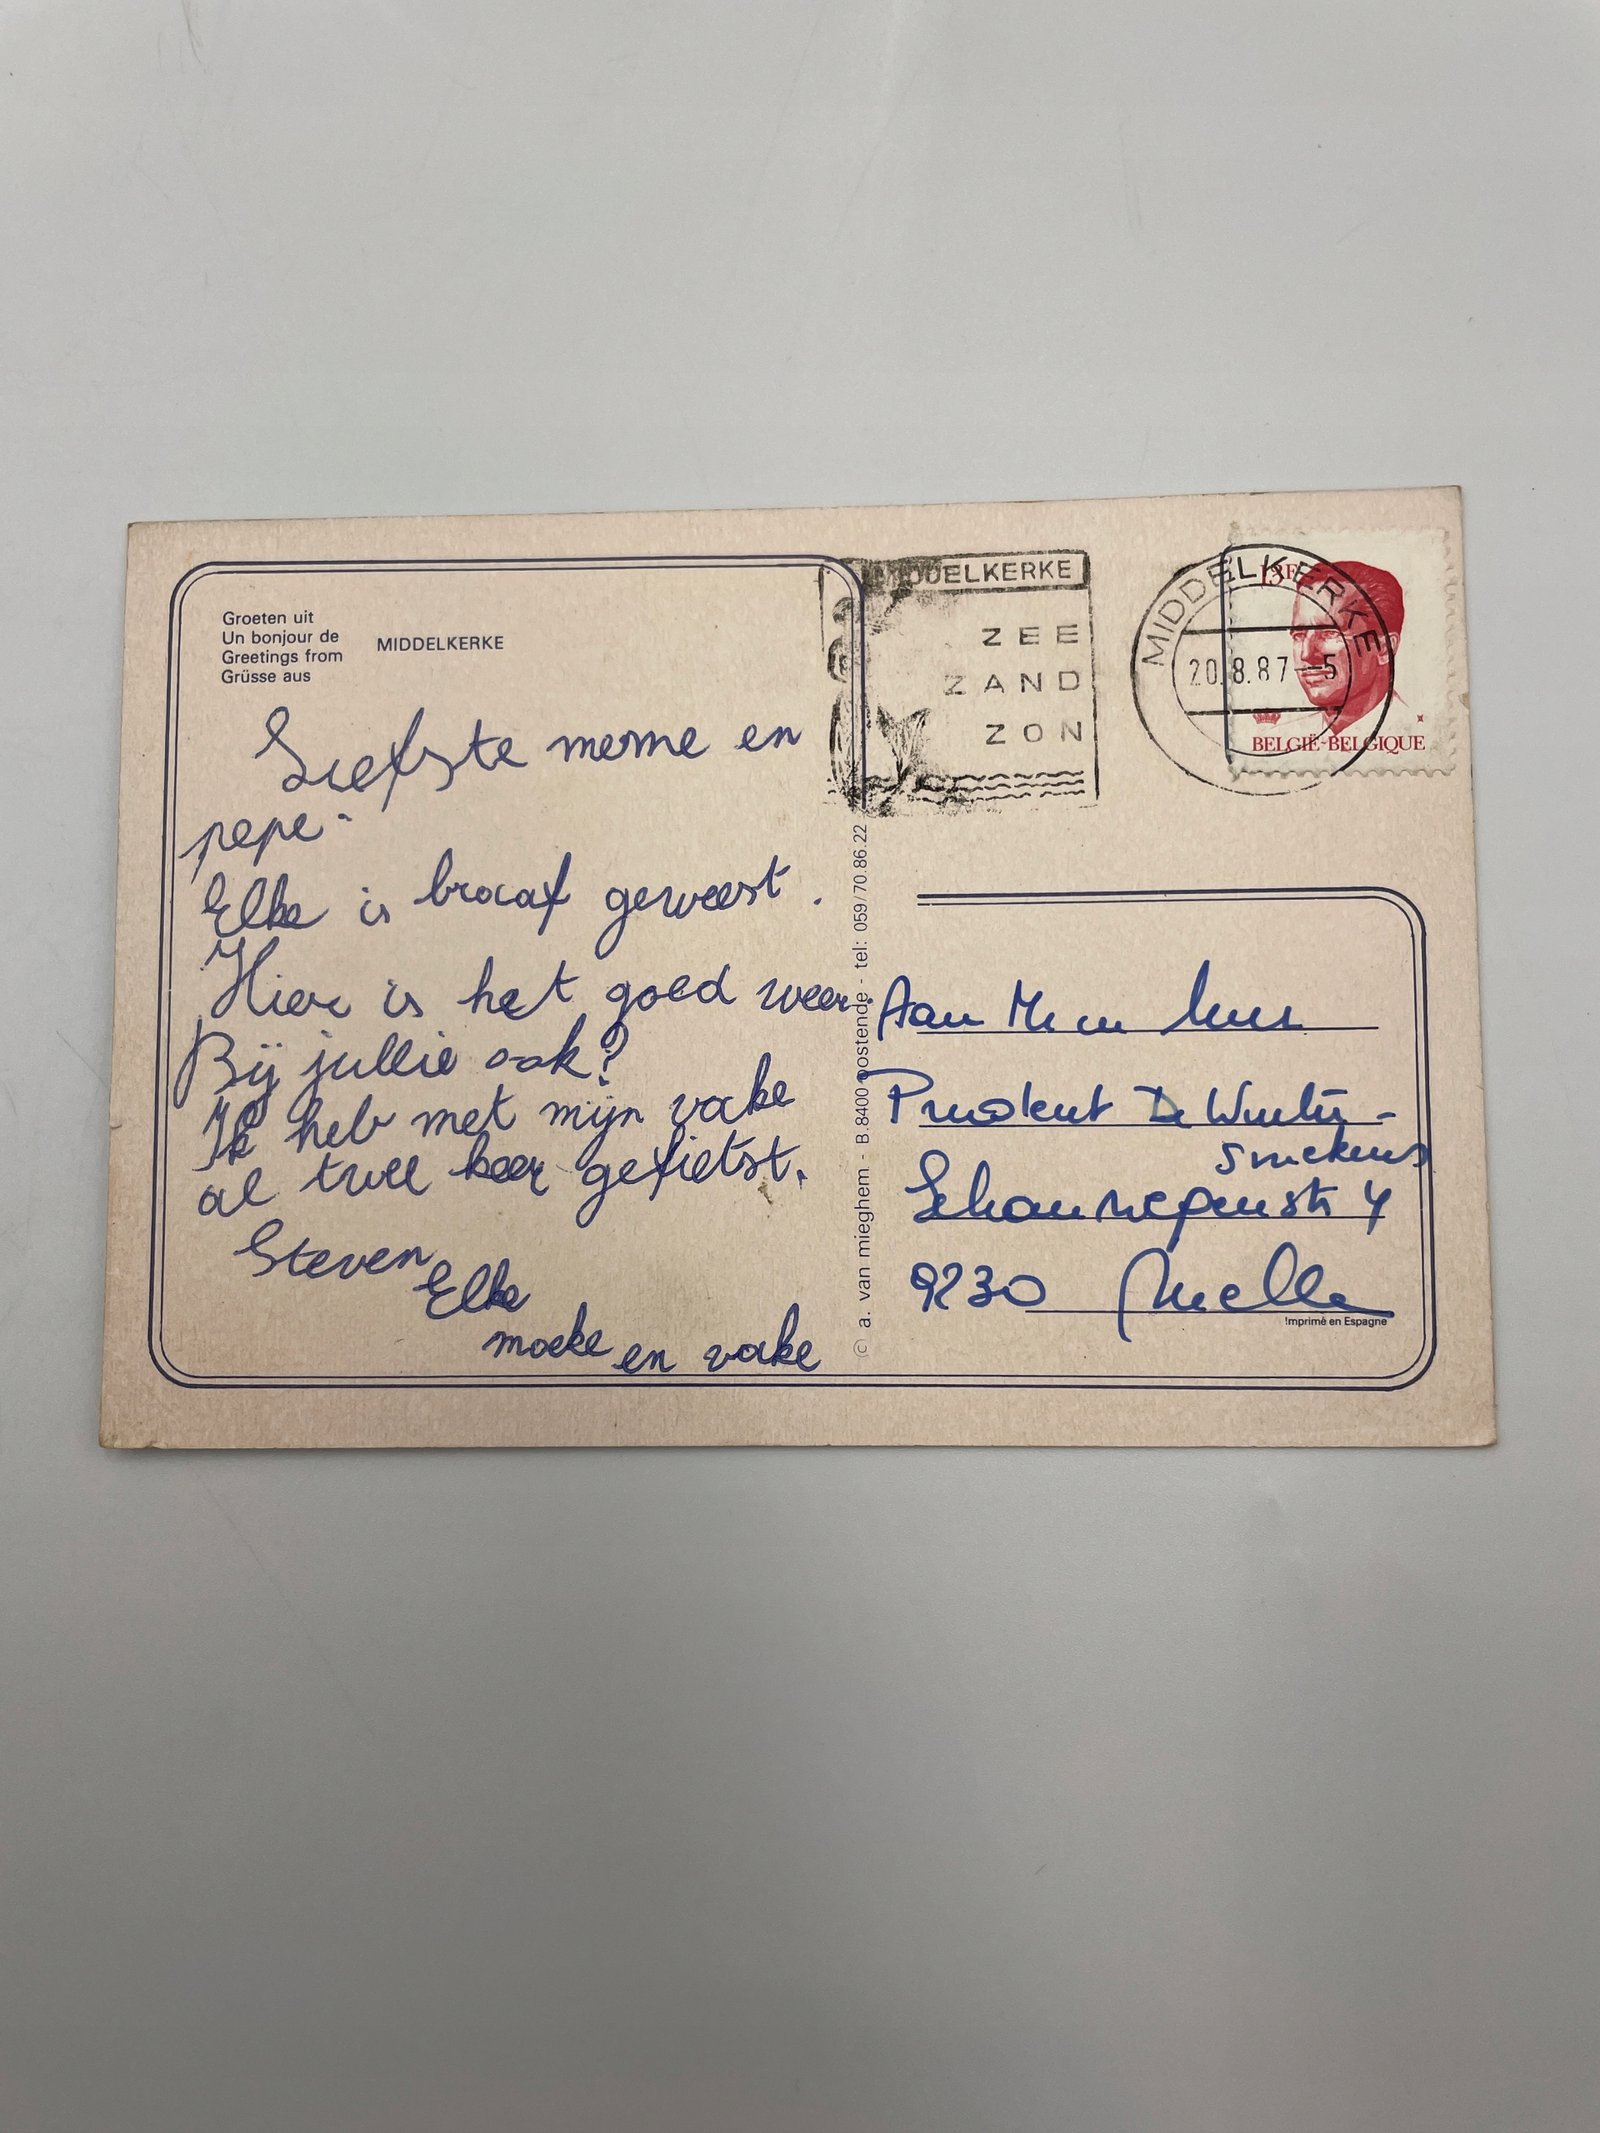 Groeten uit
Un bonjour de
Greetings from
Grüsse aus
MIDDELKERKE
Liefste meme en
pepe.
Elke is braaf geweest.
Hier is het goed weer.
Bij jullie ook?
Ik heb met mijn vake
al twee keer gefietst.
Steven
Elke
moeke en vake
MIDDELKERKE
ZEE
ZAND
ZON
MIDDELKERKE
20.8.87-5
13F
BELGIË-BELGIQUE
© a. van mieghem - B.8400 oostende - tel: 059/70.86.22
Aan M en
Prudent De Winter-
Smekens
4
9230 Melle
Imprimé en Espagne